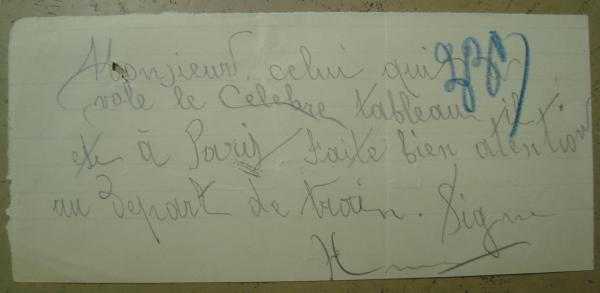 Monsieur celui qui a
vole le Celebre tableau il
et à Paris. Faite bien atention
au Depart de train. Signe
H